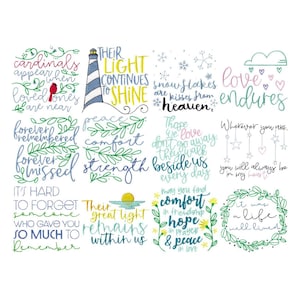 cardinals
appear when
loved ones
are near
THEIR
LIGHT
CONTINUES
TO
SHINE
snowflakes
are kisses from
heaven
love
endures
forever
remembered
forever
missed
peace
comfort
strength
those
we love
don't go away
they walk
beside us
every day
Wherever you are,
you will always be
in my
IT'S HARD
TO FORGET
someone
WHO GAVE YOU
SO MUCH TO
remember
Their
great light
remains
within us
may you find
comfort
in friendship
hope
in prayer
& peace
in love
it was a
life
well lived